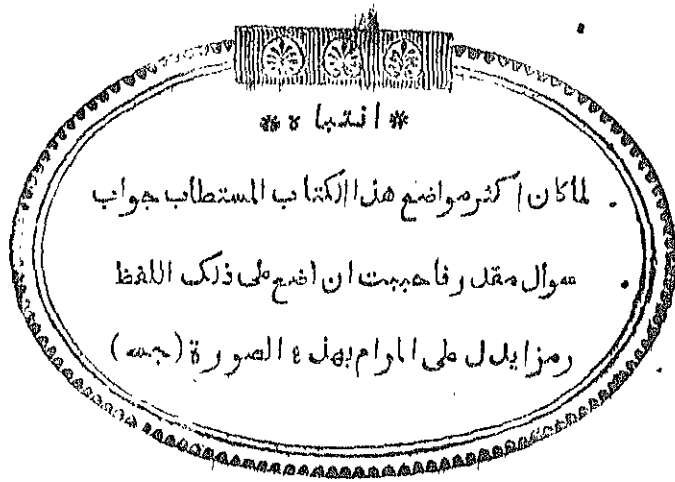 * انتباه *
لما كان اكثر مواضع هذا الكتاب المستطاب جواب
سوال مقدر فاحببت ان اضع على ذلك اللفظ
رمزا يدل على المرام بهذه الصورة (جسـ)